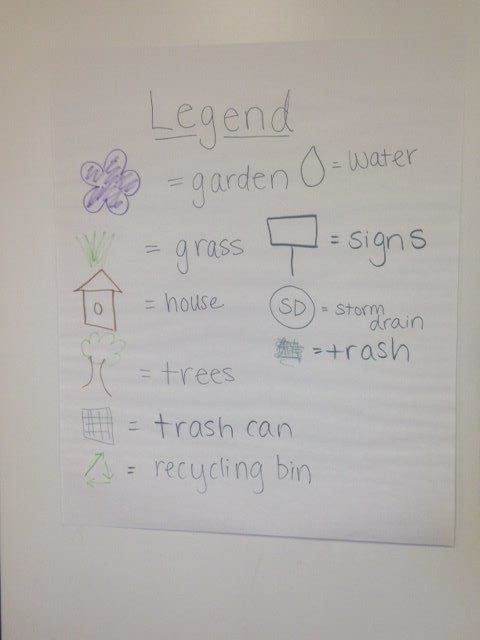 Legend
= garden
= water
= grass
= signs
= house
SD = storm
drain
= trash
= trees
= trash can
= recycling bin